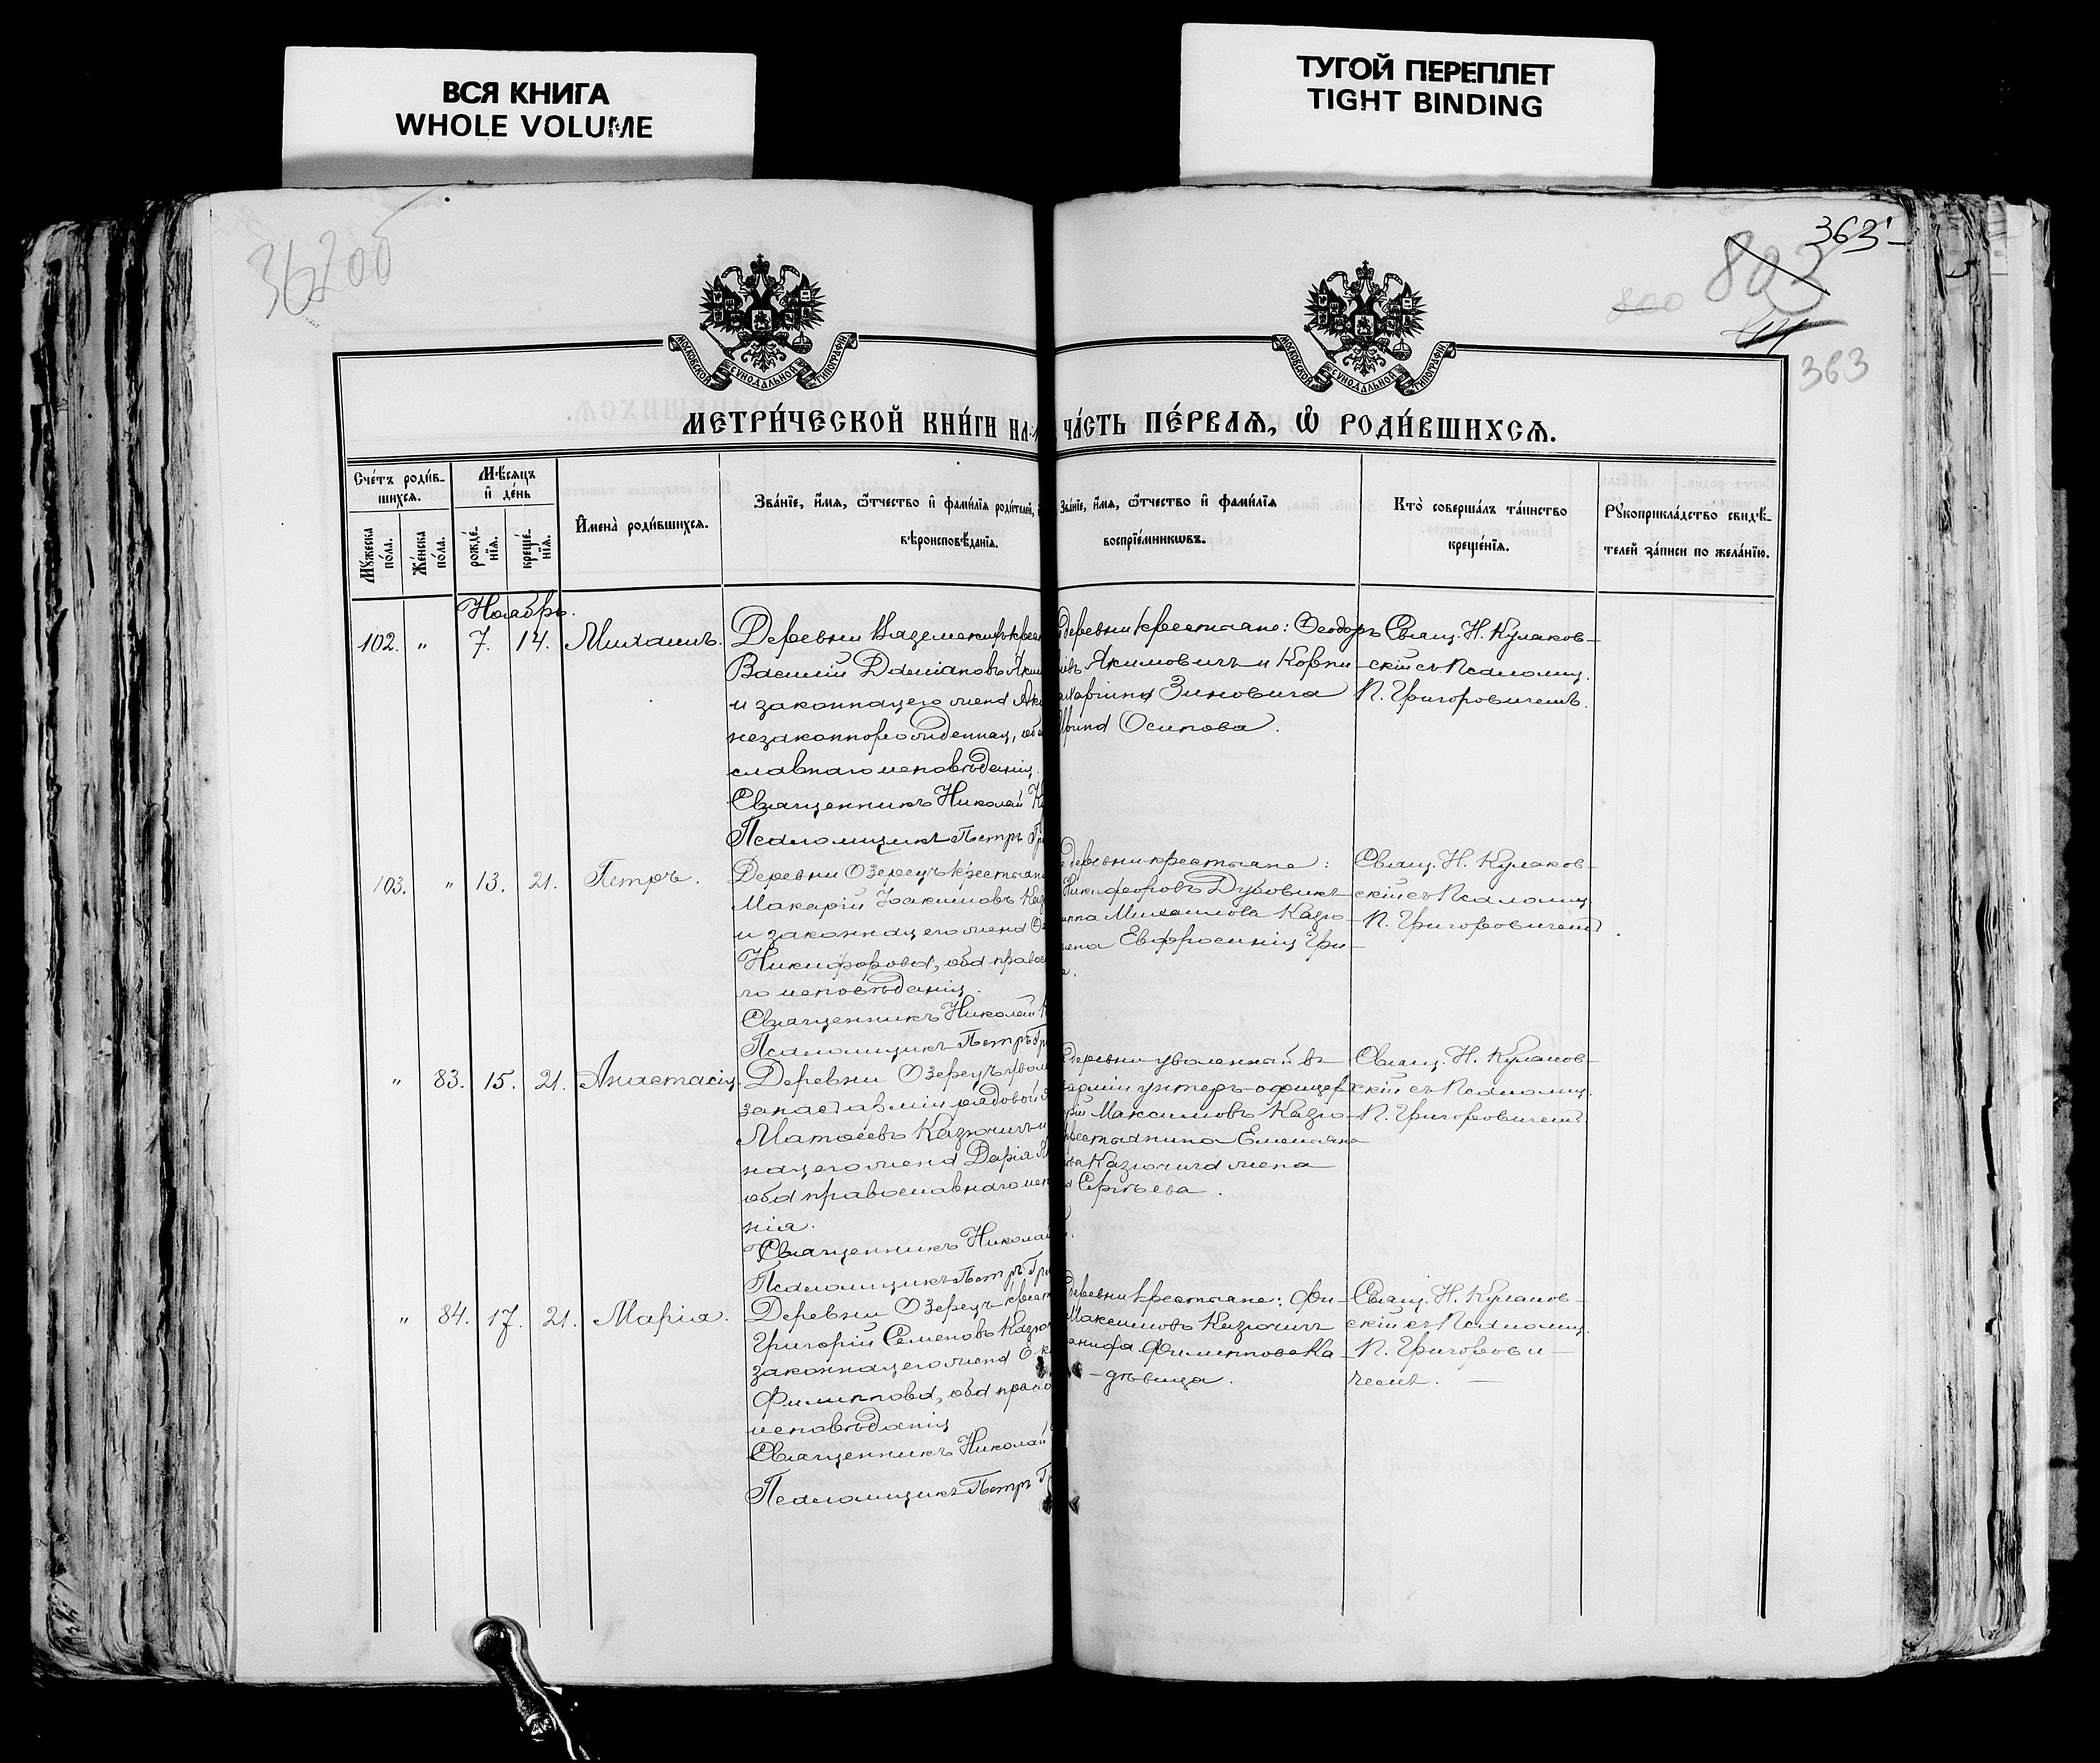 ВСЯ КНИГА
WHOLE VOLUME
ТУГОЙ ПЕРЕПЛЕТ
TIGHT BINDING
362об
363
803
800
363
МОСКОВСКОЙ СѴНОДАЛЬНОЙ ТИПОГРАФІИ
МОСКОВСКОЙ СѴНОДАЛЬНОЙ ТИПОГРАФІИ
МЕТРИ́ЧЕСКОЙ КНИ́ГИ НА
ЧА́СТЬ ПЕ́РВАЯ, Ѽ РОДИ́ВШИХСЯ.
Сче́тъ роди́в-
шихся.
Мѣ́сяцъ
и҆ де́нь
Му́жеска
по́ла.
Же́нска
по́ла.
рожде́-
нїя.
креще́-
нїя.
И҆мена̀ роди́вшихся.
Зва́нїе, и҆́мя, ѻ҆́тчество и҆ фами́лїя роди́телей,
вѣроисповѣ́данїя.
Зва́нїе, и҆́мя, ѻ҆́тчество и҆ фами́лїя
воспрїе́мниковъ.
Кто̀ соверша́лъ та́инство
креще́нїя.
Рукоприкла́дство свидѣ́-
телей за́писи по жела́нїю.
Ноябрь.
102. " 7. 14. Михаилъ.
Деревни
Василій Даміановъ Яким
и законная его жена
незаконнорожденная, оба
славнаго исповѣданія.
Священникъ Николай
Псаломщикъ Петръ Гр
деревни крестьяне: Ѳеодоръ
Якимовичъ и Корни
Зиновича
Осипова.
Свящ. Н. Кулаков-
скій съ Псаломщ.
П. Григоровичемъ.
103. " 13. 21. Петръ.
Деревни Озерецъ крестьян
Макарій Іоакимовъ Каз
и законная его жена
Никифорова, оба право
го исповѣданія.
Священникъ Николай
Псаломщикъ Петръ Гр
деревни крестьяне:
Никифоровъ Дубовикъ
Михаилова Казю-
жена Евфросинія Гри-
а.
Свящ. Н. Кулаков-
скій съ Псаломщ.
П. Григоровичемъ.
" 83. 15. 21. Анастасія.
Деревни Озерецъ увол
запас арміи рядовой
Матѳеевъ Казючичъ и
ная его жена Дарія
оба православнаго исп
нія.
Священникъ Николай
Псаломщикъ Петръ Гри
деревни уволенный въ
арміи унтеръ-офицеръ
Максимовъ Казю-
крестьянина Емельяна
Казючича жена
Сергѣева.
Свящ. Н. Кулаков-
скій съ Псаломщ.
П. Григоровичемъ.
" 84. 17. 21. Марія.
Деревни Озерецъ крест
Григорій Семеновъ Казюч
законная его жена
Филиппова, оба право
исповѣданія
Священникъ Николай
Псаломщикъ Петръ Г
деревни крестьяне: Фи-
Максимовъ Казючичъ
Филиппова Ка-
- дѣвица.
Свящ. Н. Кулаков-
скій съ Псаломщ.
П. Григорови-
чемъ.